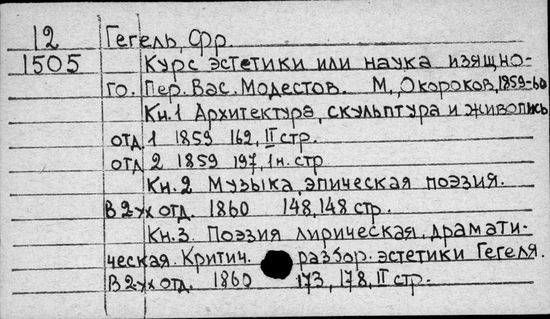 12 Гегель, Фр.
1505 Курс эстетики или наука изящно-
го. Пер. Вас. Модестов. М., Окороков, 1859-60
Кн.1 Архитектура, скульптура и живопись
отд. 1 1859 162, II стр.
отд. 2 1859 197, 1 н. стр
Кн.2 Музыка, эпическая поэзия.
В 2-ух отд. 1860 148, 148 стр.
Кн.3. Поэзия лирическая, драмати-
ческая. Критич. разбор. эстетики Гегеля.
В 2-ух отд. 1860 173, 178, II стр.